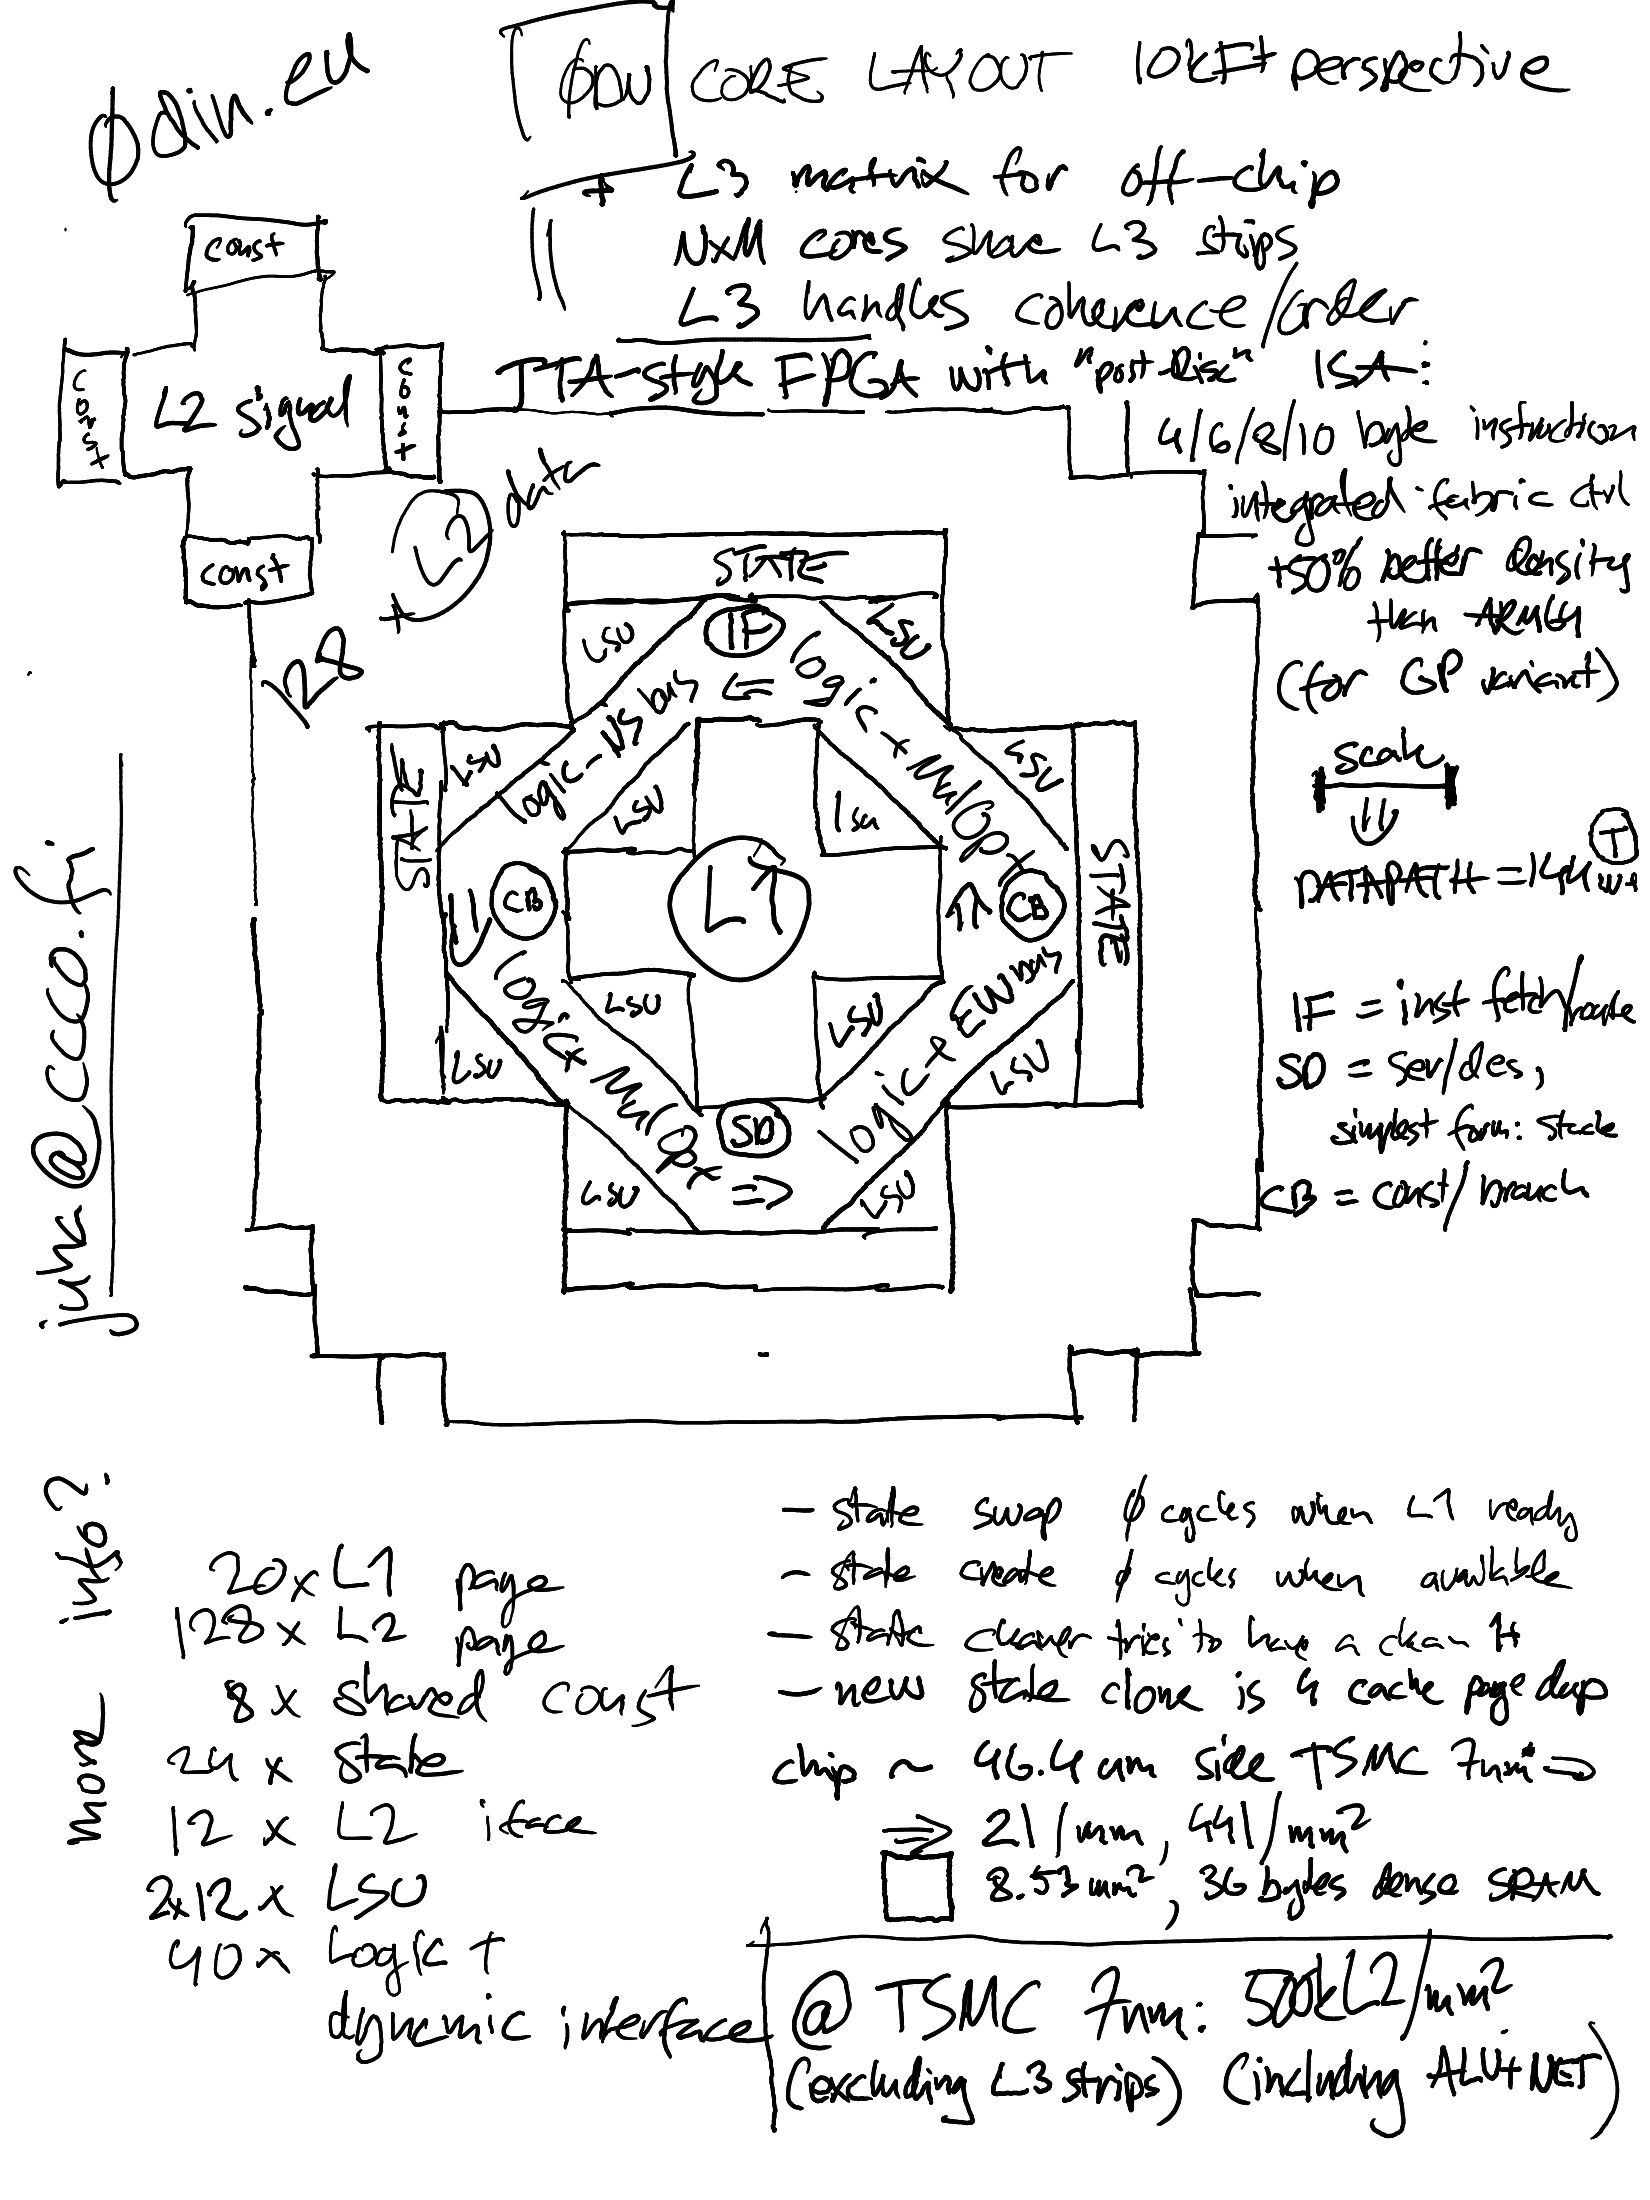 ødin.eu
ØDU CORE LAYOUT 10kFt perspective
+ L3 matrix for off-chip
NxM cores share L3 strips
L3 handles coherence/order
TTA-style FPGA with "post-Risc" ISA:
4/6/8/10 byte instruction
integrated fabric ctrl
+50% better density
than ARM64
(for GP variant)
const
const
L2 signal
const
const
128 + L2 data
STATE
LSU
IF
LSU
logic-NS bus
⇐
logic+Mul/Op+
STATE
LSU
LSU
lsu
LSU
STATE
CB
L1
CB
⇓
⇑
LSU
LSU
logic+Mul/Op+
logic+EW bus
LSU
LSU
SD
⇒
LSU
LSU
scale
⇓
DATAPATH = 144
T
IF = inst fetch/route
SD = ser/des,
simplest form: stack
CB = const/branch
juha@ccco.fi
more info?
20x L1 page
128x L2 page
8x shared const
24 x state
12 x L2 iface
2x12 x LSU
40x Logic +
dynamic interface
- state swap ø cycles when L1 ready
- state create ø cycles when available
- state cleaner tries to have a clean 1+
- new state clone is 4 cache page dup
chip ~ 46.4 um side TSMC 7nm* ⇒
⇒ 21/mm, 441/mm²
8.53mm², 36 bytes dense SRAM
@ TSMC 7nm: 500kL2/mm²
(excluding L3 strips) (including ALU+NET)